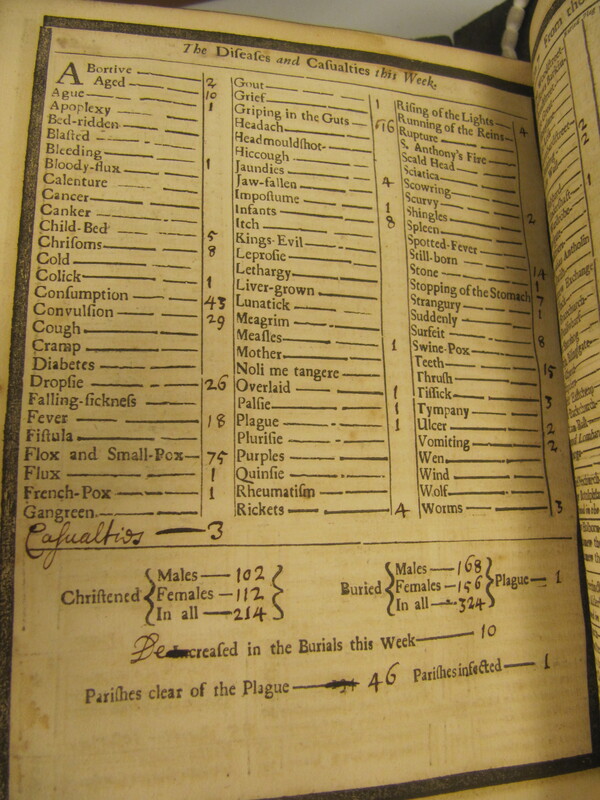 The Diſeaſes and Caſualties this Week.
Abortive 2
Aged 10
Ague 1
Apoplexy
Bed-ridden
Blaſted
Bleeding
Bloody-flux 1
Calenture
Cancer
Canker
Child-Bed 5
Chriſoms 8
Cold
Colick 1
Conſumption 43
Convulſion 29
Cough
Cramp
Diabetes
Dropſie 26
Falling-ſickneſs
Fever 18
Fiſtula
Flox and Small-Pox 75
Flux 1
French-Pox 1
Gangreen
Caſualties 3
Gout
Grief 1
Griping in the Guts 16
Headach
Headmouldſhot
Hiccough
Jaundies 4
Jaw-fallen
Impoſtume 1
Infants 8
Itch
Kings-Evil
Leproſie
Lethargy
Liver-grown
Lunatick
Meagrim
Meaſles 1
Mother
Noli me tangere
Overlaid 1
Palſie 1
Plague 1
Pluriſie
Purples
Quinſie
Rheumatiſm
Rickets 4
Riſing of the Lights 4
Running of the Reins
Rupture
S. Anthony's Fire
Scald Head
Sciatica
Scowring
Scurvy 2
Shingles
Spleen
Spotted-Fever
Still-born 14
Stone 1
Stopping of the Stomach 7
Strangury 1
Suddenly
Surfeit 8
Swine-Pox
Teeth 15
Thruſh
Tiſſick 3
Tympany
Ulcer 2
Vomiting 2
Wen
Wind
Wolf
Worms 3
Chriſtened Males 102
Females 112
In all 214
Buried Males 168
Females 156
In all 324
Plague 1
Decreaſed in the Burials this Week 10
Pariſhes clear of the Plague 46 Pariſhes infected 1
From tho